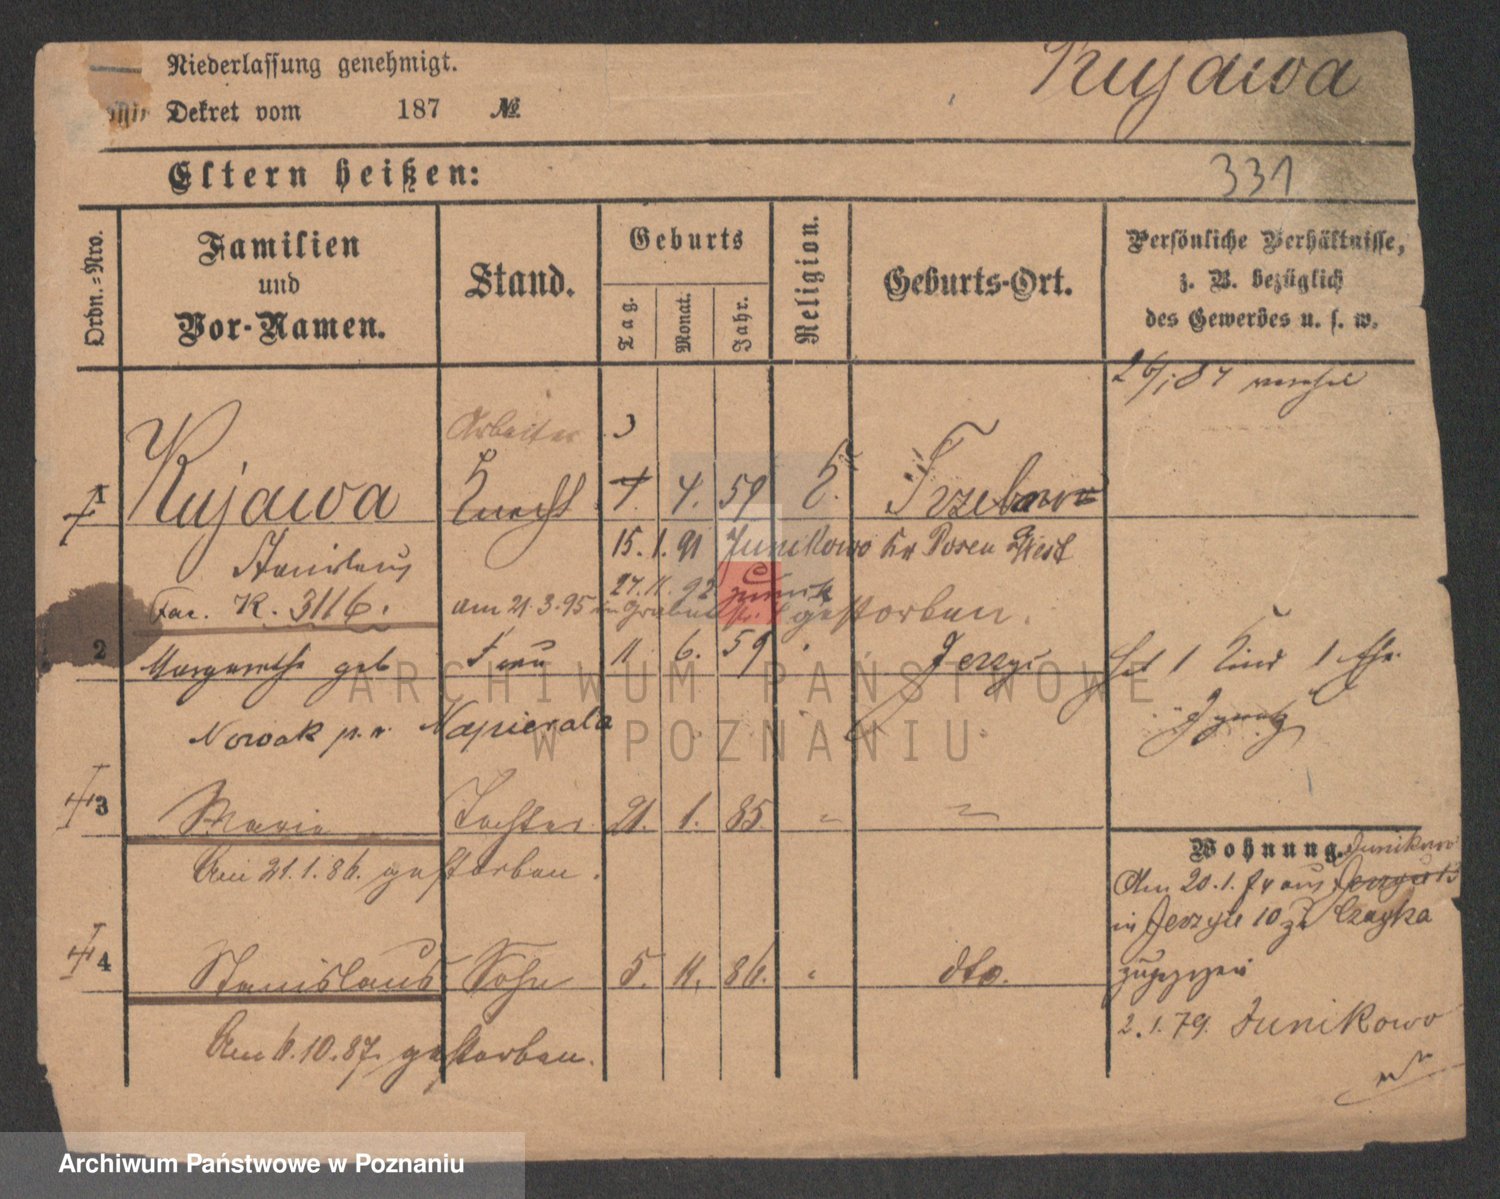 Niederlassung genehmigt.
Kujawa
Dekret vom 187 №
Eltern heißen:
331
Ordn.=Nro.
Familien
und
Vor-Namen.
Stand.
Geburts
Tag.
Monat.
Jahr.
Religion.
Geburts-Ort.
Persönliche Verhältnisse,
z. B. bezüglich
des Gewerbes u. s. w.
Arbeiter 3
1 Kujawa Knecht 7. 4. 59 k.
Stanislaus
15.1.91 Junikowo Kr Posen West
27.11.92 zurück
K. 3116.
am 21.3.95 in gestorben.
2 Margarethe geb Frau 11 6. 59 Jerzyce
Hat 1 Kind 1 Ehe
Nowak p. v. Napierala
3 Maria Tochter 21. 1. 85. "
Am 21.1.86. gestorben.
4 Stanislaus Sohn 5. 11. 86. dto.
Am 6.10.87. gestorben.
Wohnung. Junikowo
Am 20.1. aus
in Jerzyce 10 zu Czayka
zugezogen
2.1.79. Junikowo
ARCHIWUM PAŃSTWOWE
W POZNANIU
Archiwum Państwowe w Poznaniu